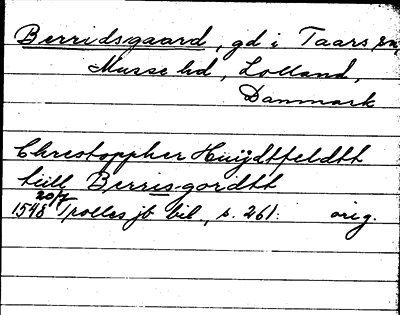 Berridsgaard, gd i Taars sn,
Musse hd, Lolland,
Danmark
Chrestoppher Huijdtfeldtt
till Berrisgordtt
20/7
1548 Trolles jb bil., s. 261. orig.